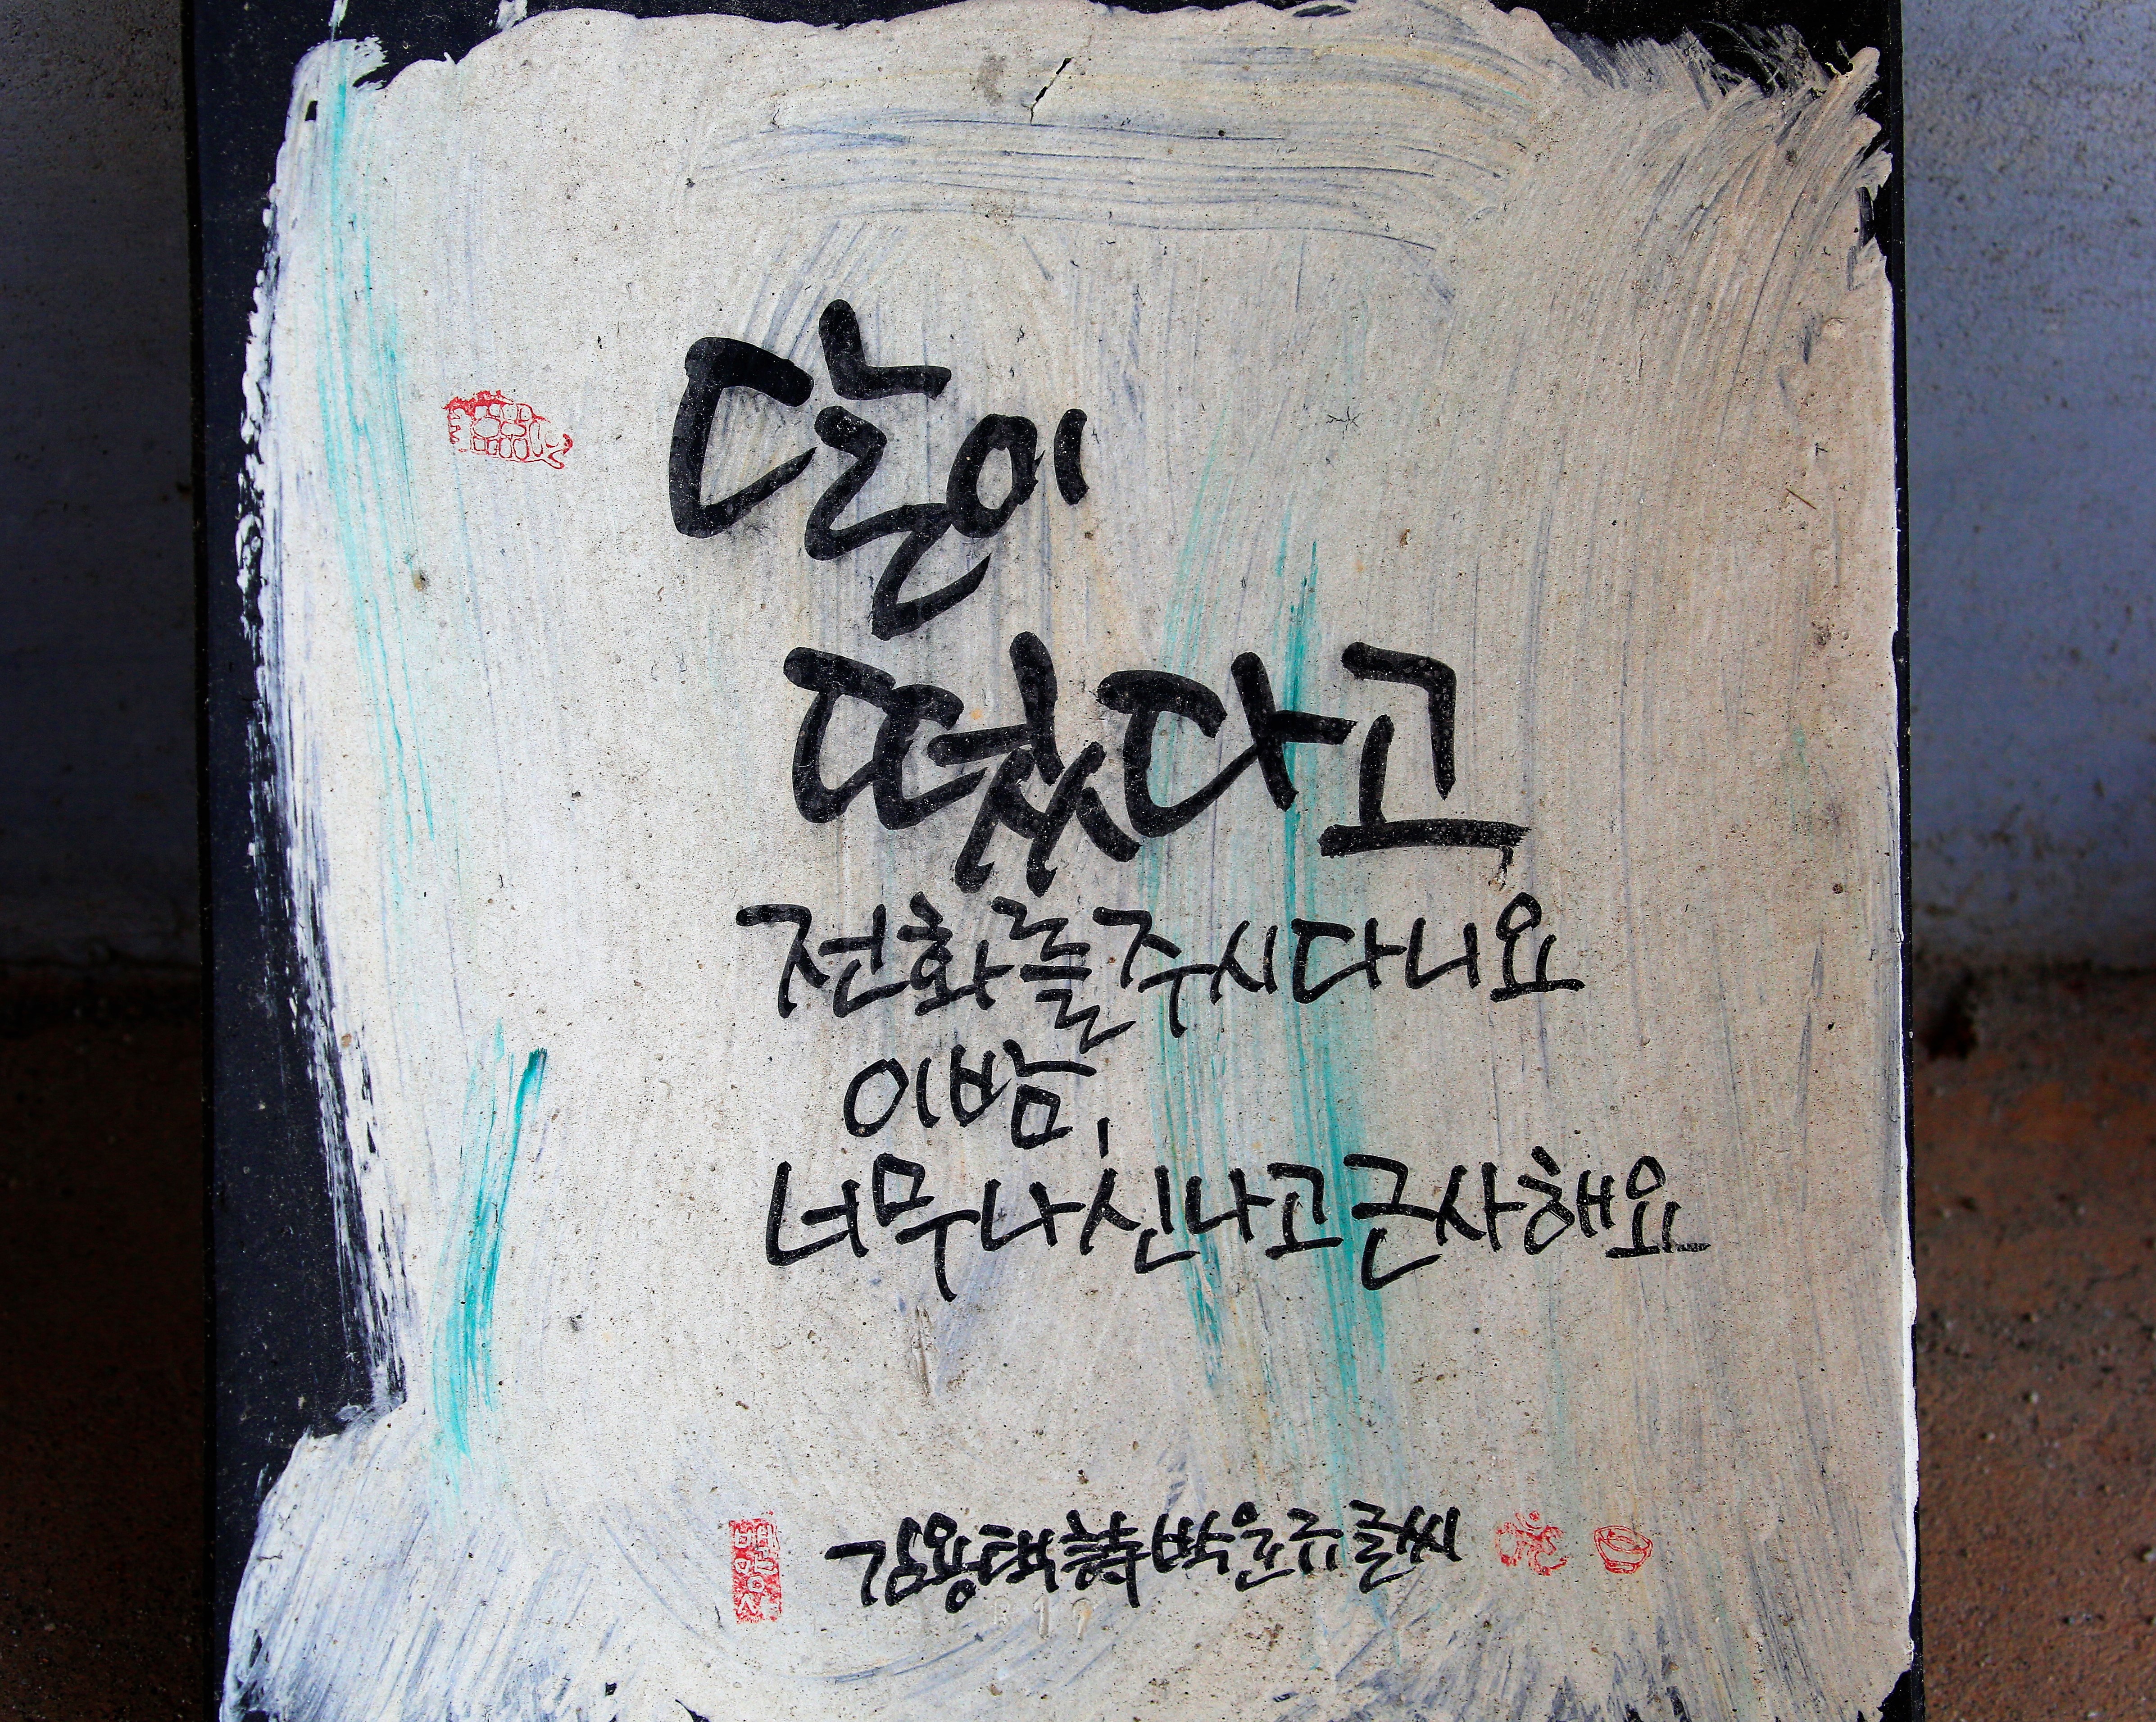 달이
떴다고
전화를 주시다니요
이 밤,
너무나 신나고 근사해요
김용택 詩 박윤규 글씨